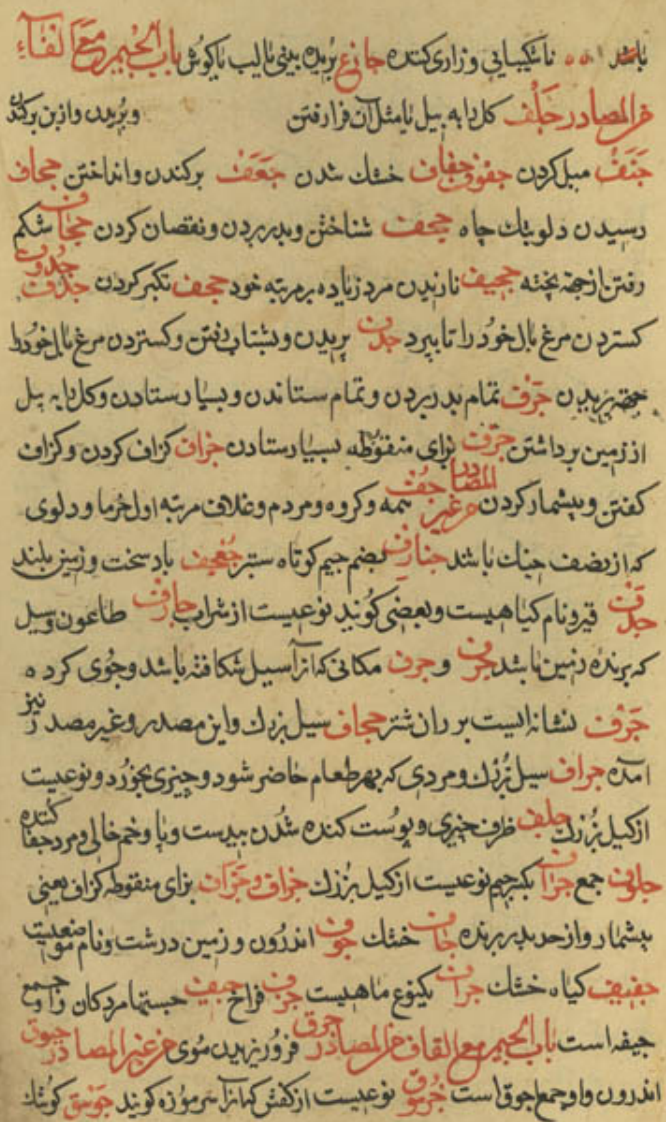 باشد ناشکیبایی و زاری کننده جازع بریده بینی یا لب یا کوش باب الجیم مع الفاء
من المصادر جلف کل را به بیل یا مثل آن فرا رفتن و بریدن و از بن برکندن
جنف میل کردن جفوف جفاف خشك شدن جعف برکندن و انداختن جحاف
رسیدن دلو بتك چاه جخف شناختن و بدر بردن و نقصان کردن جحاف شکم
رفتن از چیزی پخته جخیف نازیدن مرد زیاده بر مرتبه خود جخف تکبر کردن جدوف جذف
کستردن مرغ بال خود را تا بپرد جدف پریدن و بشتاب رفتن و کستردن مرغ بال خود را
بریدن جرف تمام بدر بردن و تمام ستاندن و بسیار ستادن و کل را به بیل
از زمین برداشتن جزف بزای منقوطه بسیار ستادن جزاف کزاف کردن و کزاف
کفتن و بیشمار کردن من غیر المصادر جف همه و کروه و مردم و غلاف مرتبه اول خرما و دلوی
که از نصف خیك باشد جنادف بضم جیم کوتاه ستبر جفجف باد سخت و زمین بلند
جدف قبر و نام کیاهیست و بعضی کویند نوعیست از شراب جارف طاعون و سیل
که برنده زمین باشد جرف و جرف مکانی که از آسیل شکافته باشد و جوی کرده
جرف نشانه ایست بر ران شتر جحاف سیل بزرك و این مصدر و غیر مصدر نیز
آمده جراف سیل بزرك و مردی که بهر طعام حاضر شود و چیزی بخورد و نوعیست
از کیل بزرك جلف ظرف چیزی و پوست کنده شدن بیدست و پا و خم خالی و مرد جفا کننده
جمع جراف بکسر جیم نوعیست از کیل بزرك جزاف و جزاف بزای منقوطه کزاف یعنی
بیشمار و از حد بدر برنده جاف خشك جوف اندرون و زمین درشت و نام موضعیست
جفیف کیاه خشك جراف یکنوع ماهیست جوف فراخ جیف جسمها مردکان و او جمع
جیفه است باب الجیم مع القاف من المصادر فرو ریزیدن موی من غیر المصادر جوق
اندرون و او جمع اجوق است جرموق نوعیست از کفش که آنرا سرموزه کویند جوسق کوشك